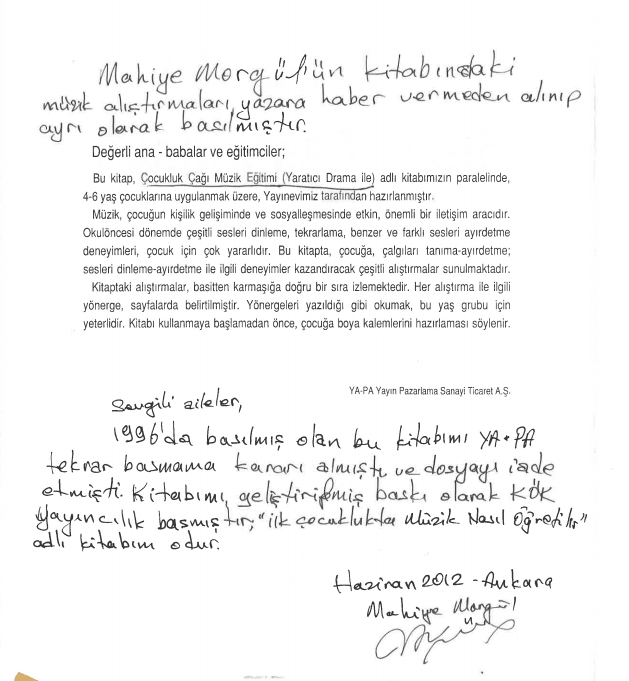 Mahiye Morgül'ün kitabındaki
müzik alıştırmaları, yazara haber vermeden alınıp
ayrı olarak basılmıştır.
Değerli ana - babalar ve eğitimciler;
Bu kitap, Çocukluk Çağı Müzik Eğitimi (Yaratıcı Drama ile) adlı kitabımızın paralelinde,
4-6 yaş çocuklarına uygulanmak üzere, Yayınevimiz tarafından hazırlanmıştır.
Müzik, çocuğun kişilik gelişiminde ve sosyalleşmesinde etkin, önemli bir iletişim aracıdır.
Okulöncesi dönemde çeşitli sesleri dinleme, tekrarlama, benzer ve farklı sesleri ayırdetme
deneyimleri, çocuk için çok yararlıdır. Bu kitapta, çocuğa, çalgıları tanıma-ayırdetme;
sesleri dinleme-ayırdetme ile ilgili deneyimler kazandıracak çeşitli alıştırmalar sunulmaktadır.
Kitaptaki alıştırmalar, basitten karmaşığa doğru bir sıra izlemektedir. Her alıştırma ile ilgili
yönerge, sayfalarda belirtilmiştir. Yönergeleri yazıldığı gibi okumak, bu yaş grubu için
yeterlidir. Kitabı kullanmaya başlamadan önce, çocuğa boya kalemlerini hazırlaması söylenir.
YA-PA Yayın Pazarlama Sanayi Ticaret A.Ş.
Sevgili aileler,
1996'da basılmış olan bu kitabımı YA•PA
tekrar basmama kararı almıştı ve dosyayı iade
etmişti. Kitabımı, geliştirilmiş baskı olarak KÖK
yayıncılık basmıştır; "ilk çocuklukta Müzik Nasıl Öğretilir"
adlı kitabım odur.
Haziran 2012 - Ankara
Mahiye Morgül